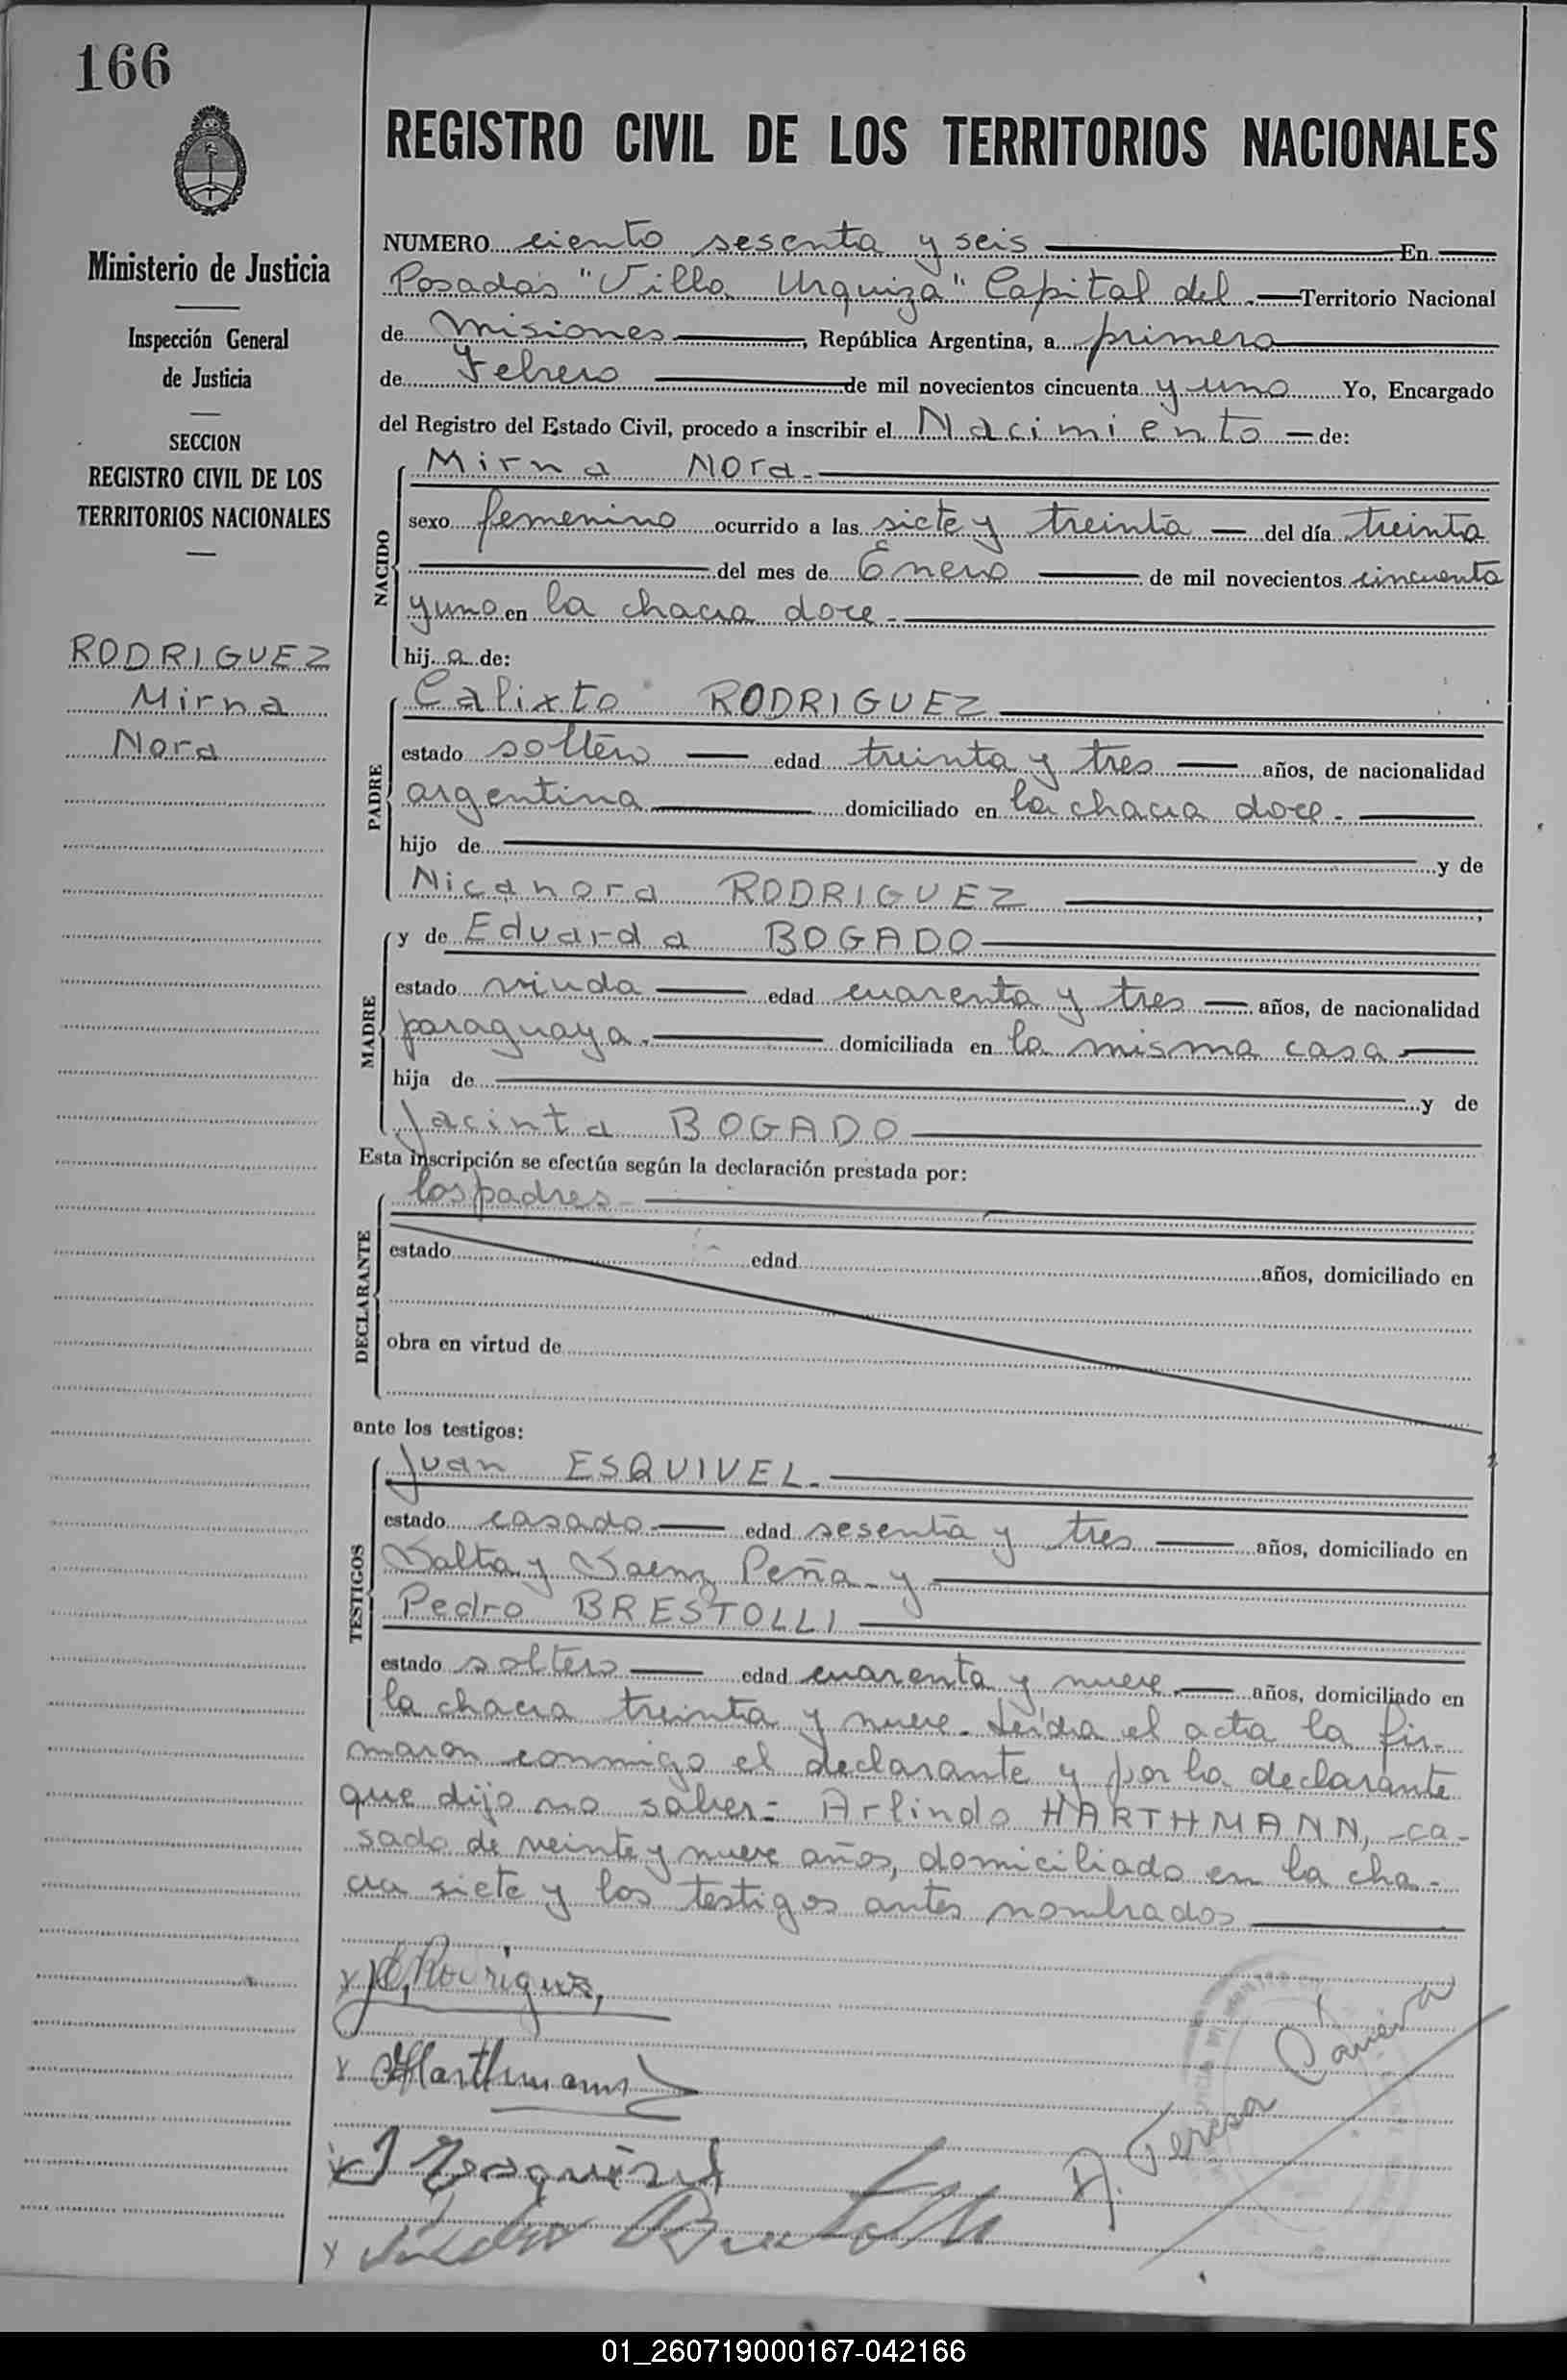 166
REGISTRO CIVIL DE LOS TERRITORIOS NACIONALES
Ministerio de Justicia
Inspección General
de Justicia
SECCION
REGISTRO CIVIL DE LOS
TERRITORIOS NACIONALES
RODRIGUEZ
Mirna
Nora
NUMERO ciento sesenta y seis En
Posadas "Villa Urquiza" Capital del Territorio Nacional
de Misiones, República Argentina, a primero
de Febrero de mil novecientos cincuenta y uno Yo, Encargado
del Registro del Estado Civil, procedo a inscribir el Nacimiento de:
NACIDO
Mirna Nora.
sexo femenino ocurrido a las siete y treinta del día treinta
del mes de Enero de mil novecientos cincuenta
y uno en la chacra doce.
hij a de:
PADRE
Calixto RODRIGUEZ
estado soltero edad treinta y tres años, de nacionalidad
argentina domiciliado en la chacra doce.
hijo de y de
Nicanora RODRIGUEZ
MADRE
y de Eduarda BOGADO
estado viuda edad cuarenta y tres años, de nacionalidad
paraguaya. domiciliada en la misma casa
hija de y de
Jacinta BOGADO
Esta inscripción se efectúa según la declaración prestada por:
DECLARANTE
los padres
estado edad años, domiciliado en
obra en virtud de
ante los testigos:
TESTIGOS
Juan ESQUIVEL.
estado casado edad sesenta y tres años, domiciliado en
Salta y Saenz Peña y
Pedro BRESTOLLI
estado soltero edad cuarenta y nueve. años, domiciliado en
la chacra treinta y nueve. Leída el acta la fir-
maron conmigo el declarante y por la declarante
que dijo no saber: Arlindo HARTHMANN, ca-
sado de veinte y nueve años, domiciliado en la cha-
cra siete y los testigos antes nombrados
Rodriguez,
Harthmann
J Esquivel
Pedro Brestolli
Teresa
01_260719000167-042166